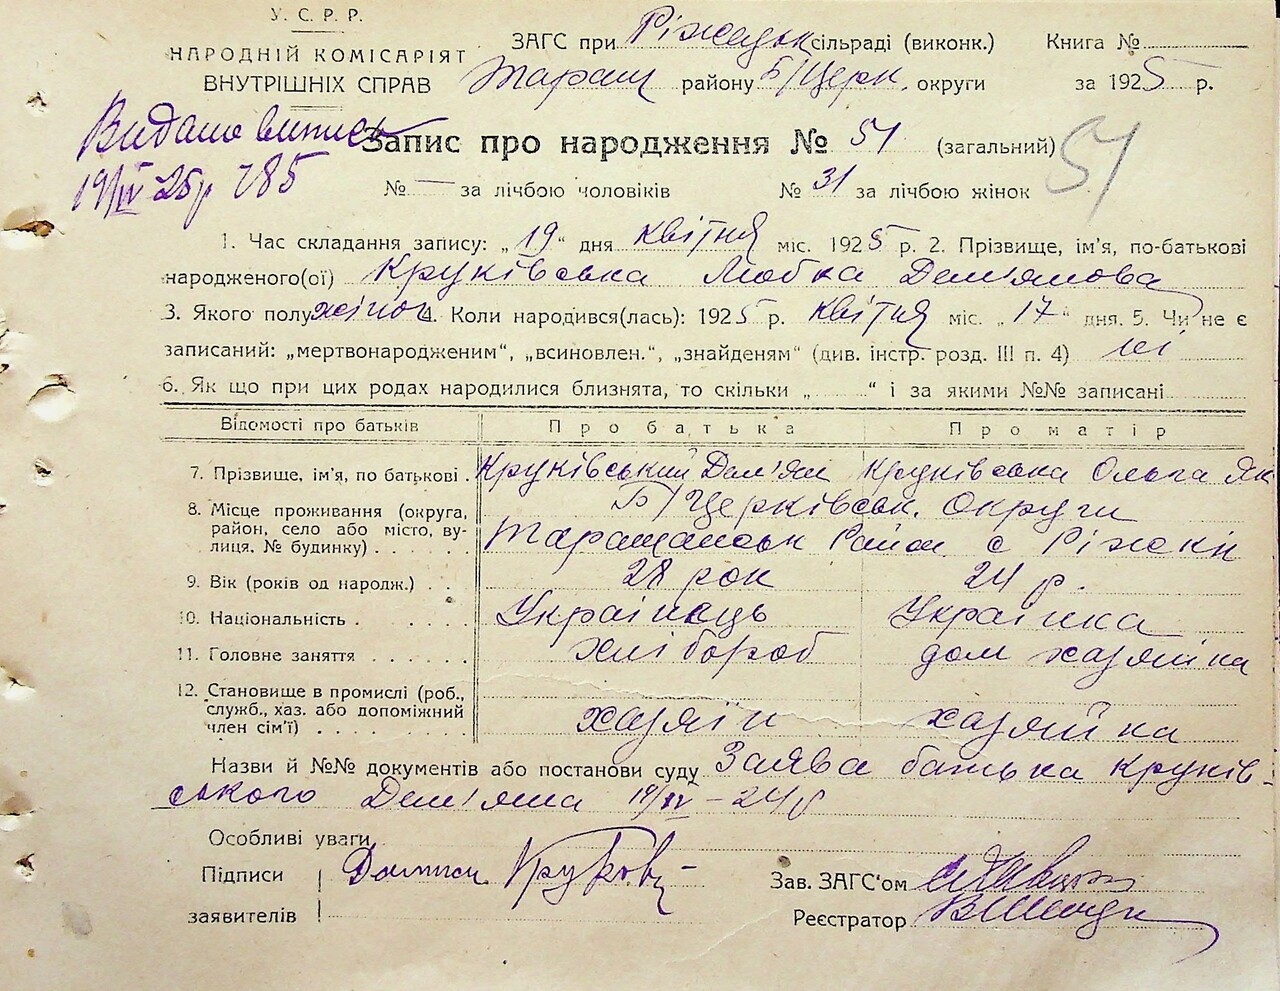 У. С. Р. Р.
НАРОДНІЙ КОМІСАРІЯТ
ВНУТРІШНІХ СПРАВ
ЗАГС при Ріжедськ сільраді (виконк.) Книга №
Таращ району Б/Церк. округи за 1925 р.
Видано випись
19/IV-25р 785
Запис про народження № 51 (загальний) 51
№ — за лічбою чоловіків № 31 за лічбою жінок
1. Час складання запису: „19" дня квітня міс. 1925 р. 2. Прізвище, ім'я, по-батькові
народженого(ої) Круківська Любка Дем'янова
3. Якого полу жіноч 4. Коли народився(лась): 1925 р. квітня міс. „17" дня. 5. Чи не є
записаний: „мертвонародженим", „всиновлен.", „знайденям" (див. інстр. розд. III п. 4) ні
6. Як що при цих родах народилися близнята, то скільки „ " і за якими №№ записані
Відомості про батьків Про батька Про матір
7. Прізвище, ім'я, по батькові . Круківський Дем'ян Круківська Ольга Як
8. Місце проживання (округа, район, село або місто, вулиця, № будинку) Б/Церківськ. Округи
Таращанськ Район с Ріжки
9. Вік (років од народж.) . . 28 рок 24 р.
10. Національність . . . . . . Українець Українка
11. Головне заняття . . . . . . хлібороб дом хазяйка
12. Становище в промислі (роб., служб., хаз. або допоміжний член сім'ї) . . . . . . . хазяїн хазяйка
Назви й №№ документів або постанови суду Заява батька Круків-
ського Дем'яна 19/IV-24р
Особливі уваги
Підписи
заявителів
Зав. ЗАГС'ом
Реєстратор